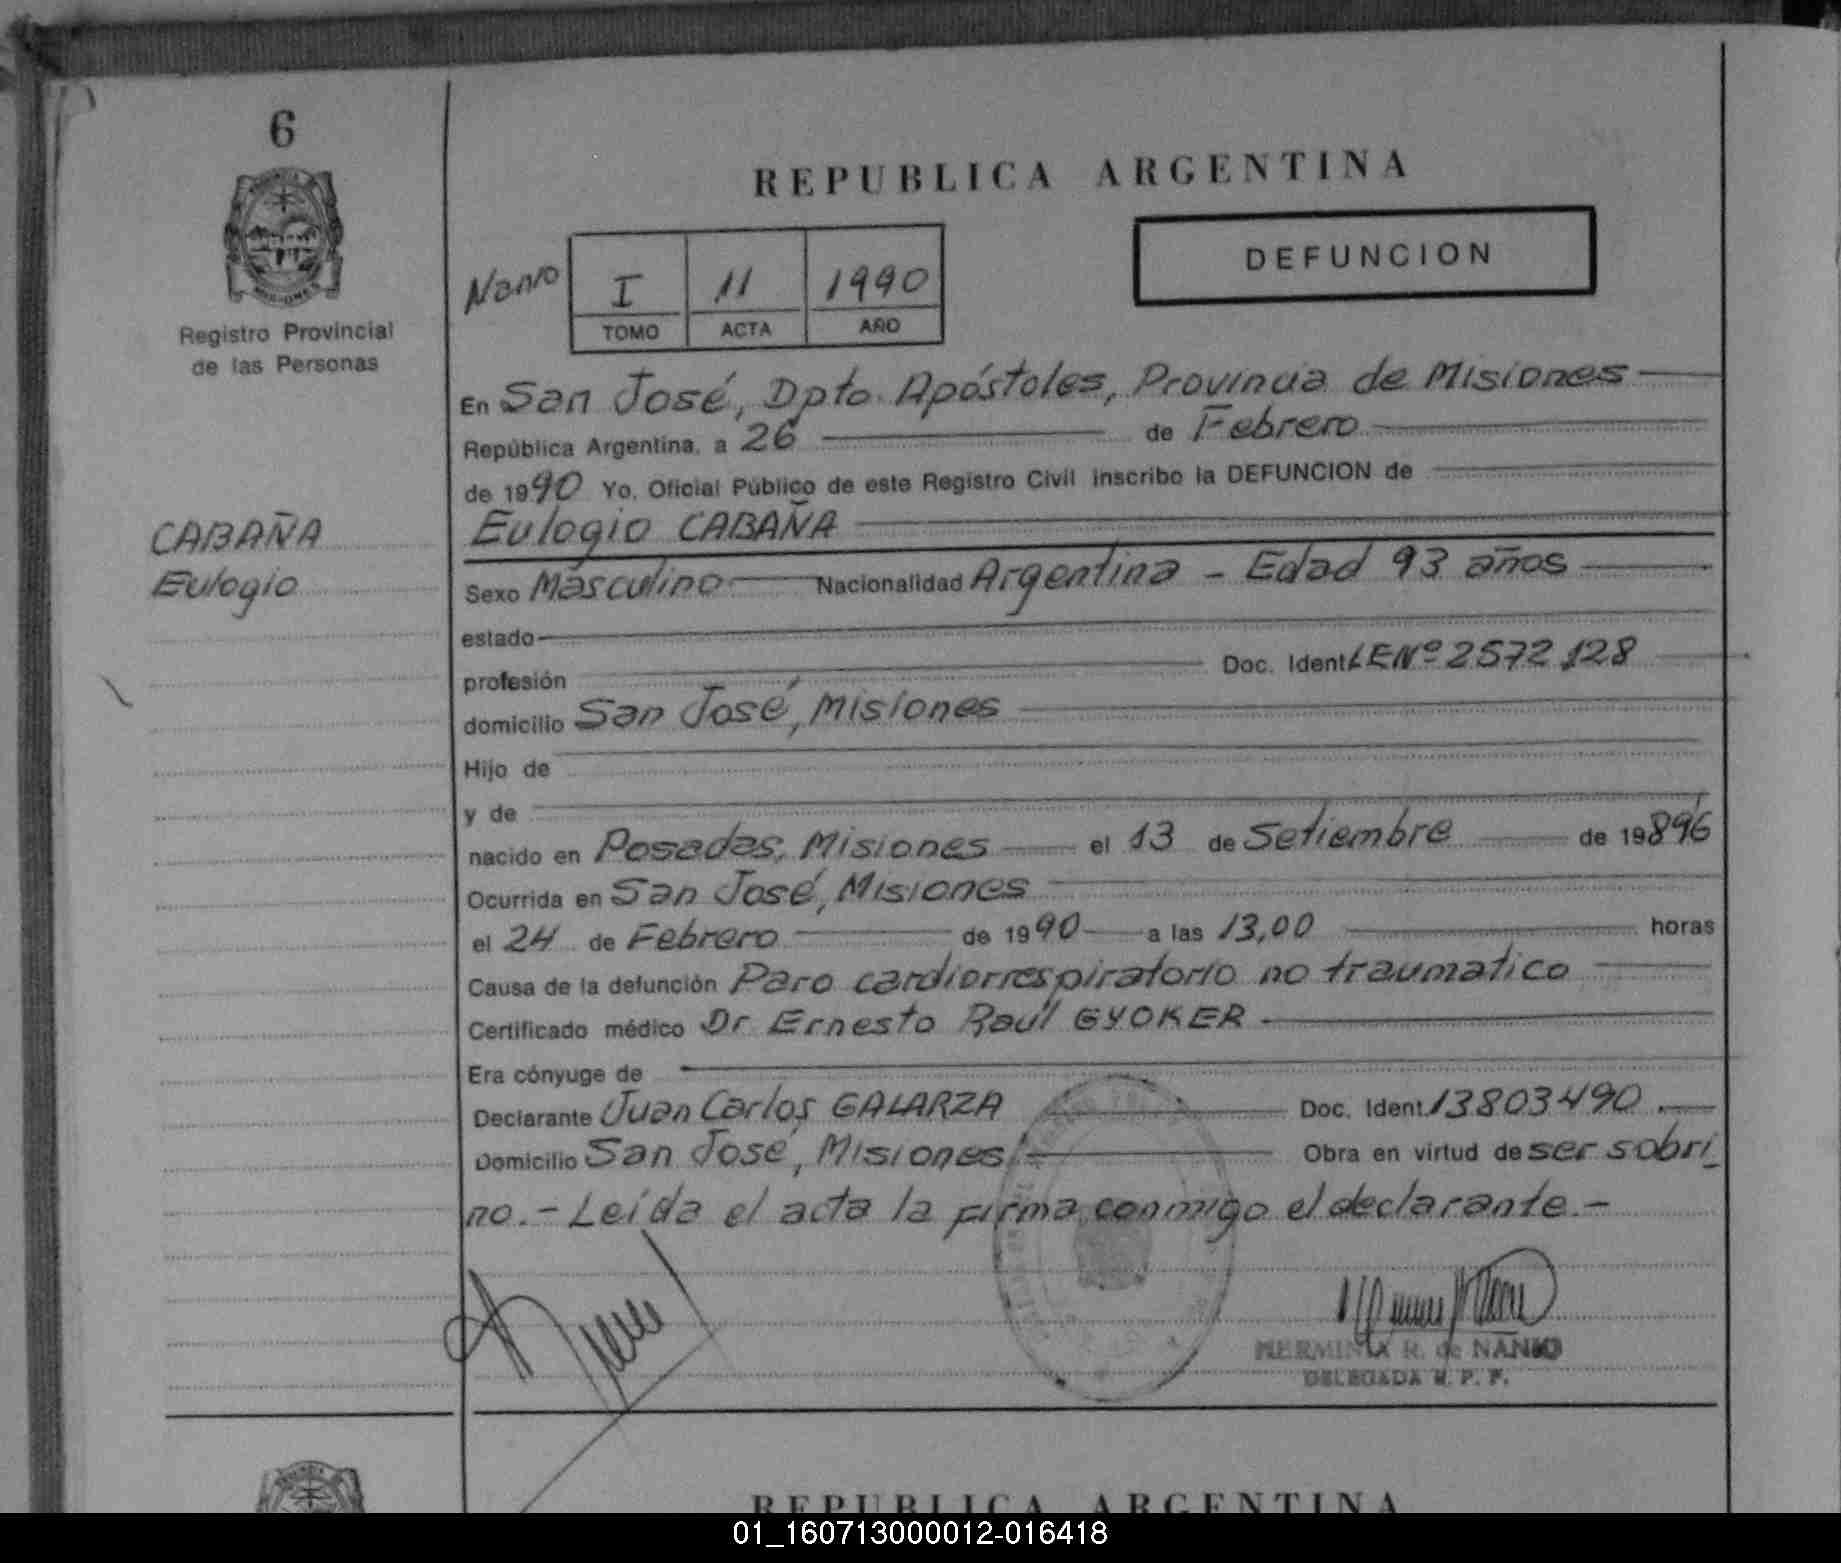 6
REPUBLICA ARGENTINA
DEFUNCION
Nanio
I 11 1990
TOMO ACTA AÑO
Registro Provincial
de las Personas
En San José, Dpto. Apóstoles, Provincia de Misiones
República Argentina, a 26 de Febrero
de 1990 Yo, Oficial Público de este Registro Civil inscribo la DEFUNCION de
CABAÑA
Eulogio
Eulogio CABAÑA
Sexo Masculino Nacionalidad Argentina - Edad 93 años
estado
profesión Doc. Ident. LENº 2572128
domicilio San José, Misiones
Hijo de
y de
nacido en Posadas, Misiones el 13 de Setiembre de 19896
Ocurrida en San José, Misiones
el 24 de Febrero de 1990 a las 13,00 horas
Causa de la defunción Paro cardiorrespiratorio no traumatico
Certificado médico Dr Ernesto Raúl GYOKER
Era cónyuge de
Declarante Juan Carlos GALARZA Doc. Ident. 13803490
Domicilio San José, Misiones Obra en virtud de ser sobri_
no.- Leída el acta la firma conmigo el declarante.-
HERMINIA R. de NANIO
DELEGADA R. P. P.
REPUBLICA ARGENTINA
01_160713000012-016418